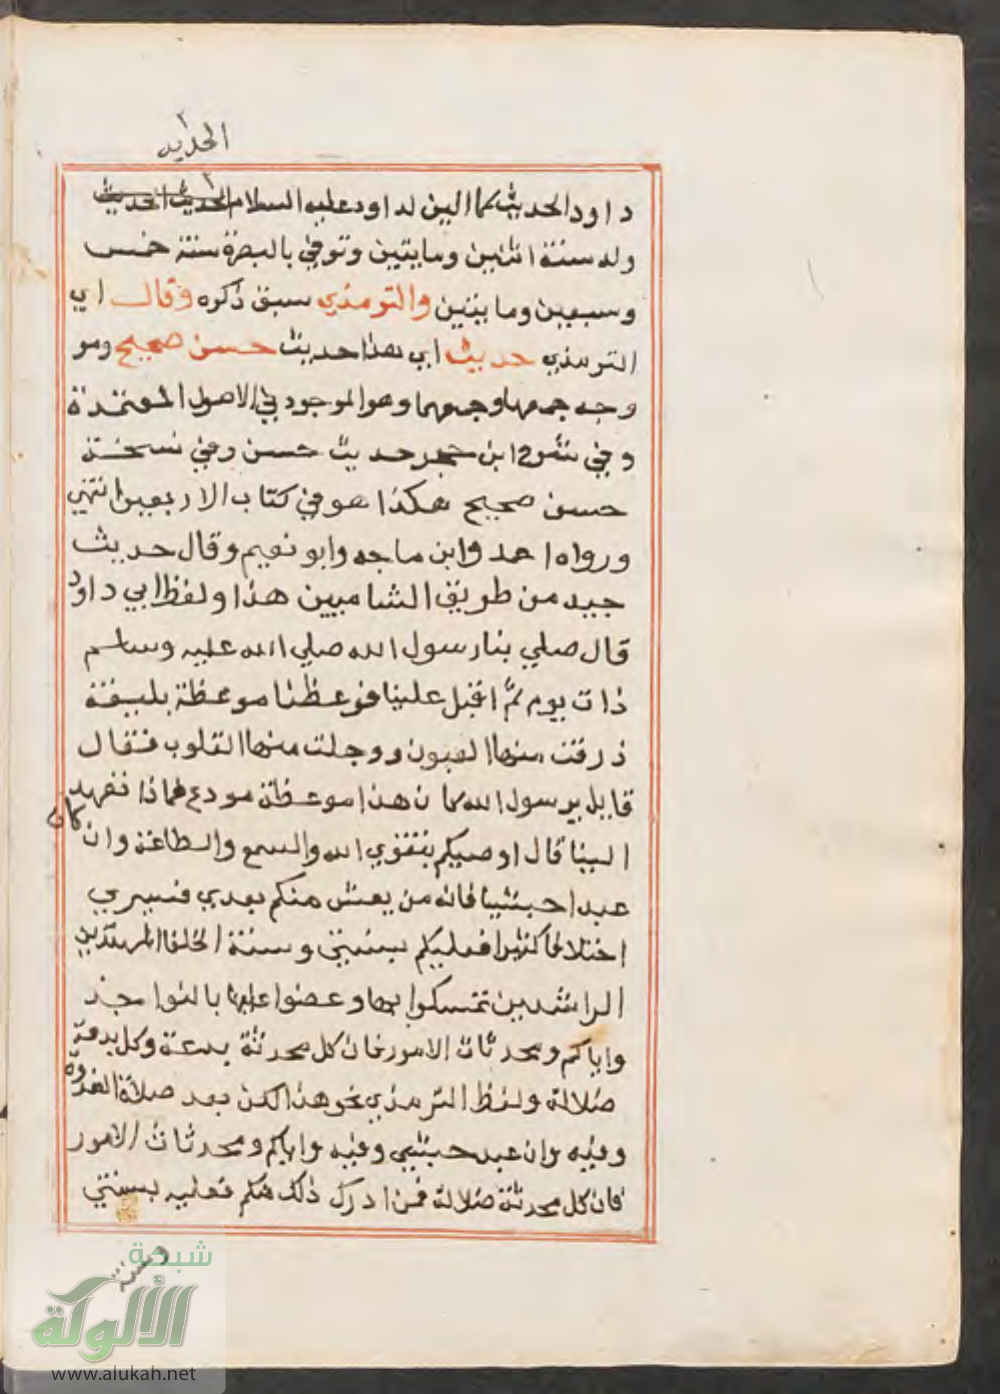 الحديد
داود الحديث كما الين لداود عليه السلام الحديث الحديث
ولد سنة اثنين ومايتين وتوفي بالبصرة سنة خمس
وسبعين ومايتين والترمذي سبق ذكره وقال اي
الترمذي حديث اي هذا حديث حسن صحيح ومر
وجه جمعها وجمعهما وهو الموجود في الاصول المعتمدة
وفي شرح ابن حجر حديث حسن وفي نسخة
حسن صحيح هكذا هو في كتاب الاربعين انتهي
ورواه احمد وابن ماجه وابو نعيم وقال حديث
جيد من طريق الشاميين هذا ولفظ ابي داود
قال صلي بنا رسول الله صلي الله عليه وسلم
ذات يوم ثم اقبل علينا فوعظنا موعظة بليغة
ذرفت منها العيون ووجلت منها القلوب فقال
قايل يرسول الله كان هذا موعظة مودع فماذا تعهد
الينا قال اوصيكم بتقوي الله والسمع والطاعة وان كان
عبدا حبشيا فانه من يعش منكم بعدي فسيري
اختلافا كثيرا فعليكم بسنتي وسنة الخلفا المهتدين
الراشدين تمسكوا بها وعضوا عليها بالنواجذ
واياكم ومحدثات الامور فان كل محدثة بدعة وكل بدعة
ضلالة ولفظ الترمذي نحو هذا لكن بعد صلاة الغدوة
وفيه وان عبد حبشي وفيه واياكم ومحدثات الامور
فان كل محدثة ضلالة فمن ادرك ذلك منكم فعليه بسنتي
وسنة
شبكة
الألوكة
www.alukah.net